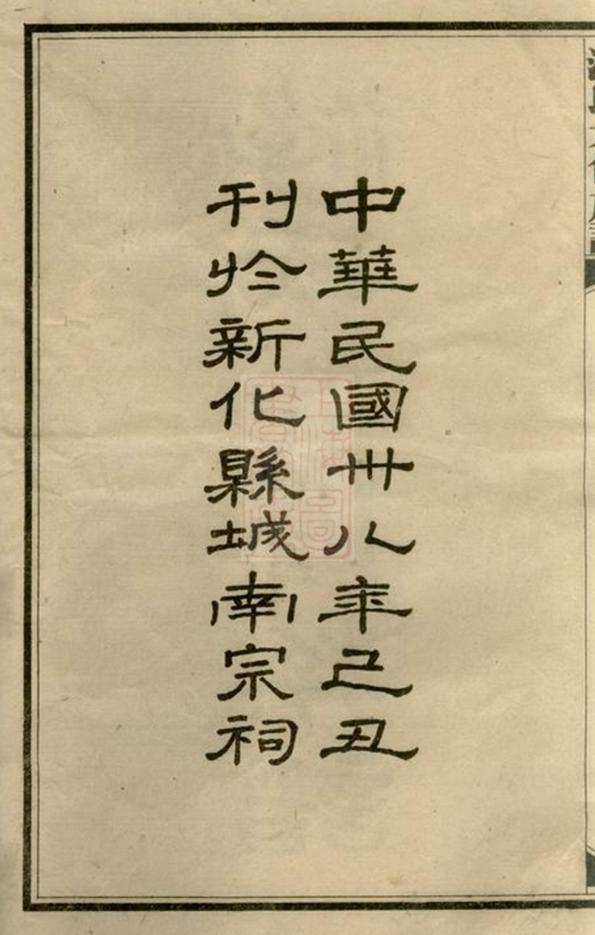 中華民國卅八年己丑
刊於新化縣城南宗祠